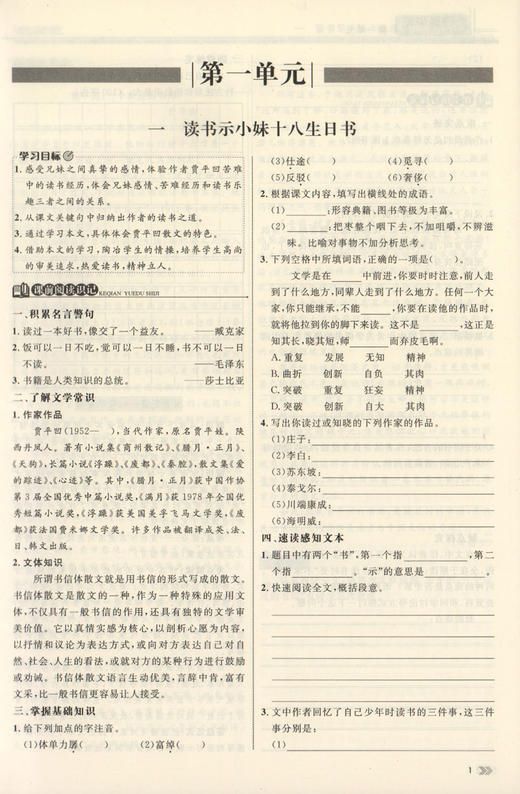 第一单元
一 读书示小妹十八生日书
学习目标
1. 感受兄妹之间真挚的感情,体验作者贾平凹苦难
中的读书经历,体会兄妹感情、苦难经历和读书乐
趣三者之间的关系。
2. 从课文关键句中归纳出作者的读书之道。
3. 通过学习本文,具体体会贾平凹散文的特色。
4. 借助本文的学习,陶冶学生的情操,培养学生高尚
的审美追求,热爱读书,精神立人。
课前阅读识记 KEQIAN YUEDU SHIJI
一、积累名言警句
1. 读过一本好书,像交了一个益友。 ——臧克家
2. 饭可以一日不吃,觉可以一日不睡,书不可以一日
不读。 ——毛泽东
3. 书籍是人类知识的总统。 ——莎士比亚
二、了解文学常识
1. 作家作品
贾平凹(1952— ),当代作家,原名贾平娃。陕
西丹凤人。著有小说集《商州散记》、《腊月·正月》、
《天狗》,长篇小说《浮躁》、《废都》、《秦腔》,散文集《爱
的踪迹》、《心迹》等。其中,《腊月·正月》获中国作协
第3届全国优秀中篇小说奖,《满月》获1978年全国优
秀短篇小说奖,《浮躁》获美国美孚飞马文学奖,《废
都》获法国费米娜文学奖。许多作品被翻译成英、法、
日、韩文出版。
2. 文体知识
所谓书信体散文就是用书信的形式写成的散文。
书信体散文是散文的一种,作为一种特殊的应用文
体,不仅具有一般书信的作用,还具有独特的文学审
美价值。它以真情实感为核心,以剖析心愿为内容,
以抒情和议论为表达方式,或向对方表达自己对自
然、社会、人生的看法,或就对方的某种行为进行鼓励
或劝诫。书信体散文语言生动优美,言辞中肯,富有
文采,比一般书信更容易让人接受。
三、掌握基础知识
1. 给下列加点的字注音。
(1)体单力孱( ) (2)富绰( )
(3)仕途( ) (4)觅寻( )
(5)反驳( ) (6)奢侈( )
2. 根据课文内容,填写出横线处的成语。
(1)________:形容典籍、图书等极为丰富。
(2)________:把枣整个咽下去,不加咀嚼,不辨滋
味。比喻对事物不加分析思考。
3. 下列空格中所填词语,正确的一项是( )。
文学是在____中前进,你要时时注意,前人走
到了什么地方,同辈人走到了什么地方。任何一个大
家,你只能继承,不能____,你要在读他的作品时,
就将他拉到你的脚下来读。这不是____,这正是
知其长,晓其短,师____而弃皮毛啊。
A. 重复 发展 无知 精神
B. 曲折 创新 自负 其肉
C. 突破 重复 狂妄 精神
D. 突破 创新 自大 其肉
4. 写出你读过或知晓的下列作家的作品。
(1)庄子:________
(2)李白:________
(3)苏东坡:________
(4)泰戈尔:________
(5)川端康成:________
(6)海明威:________
四、速读感知文本
1. 题目中有两个“书”,第一个指________,第二
个指________。“示”的意思是________。
2. 快速阅读全文,概括段意。
3. 文中作者回忆了自己少年时读书的三件事,这三件
事分别是:
(1)________
1